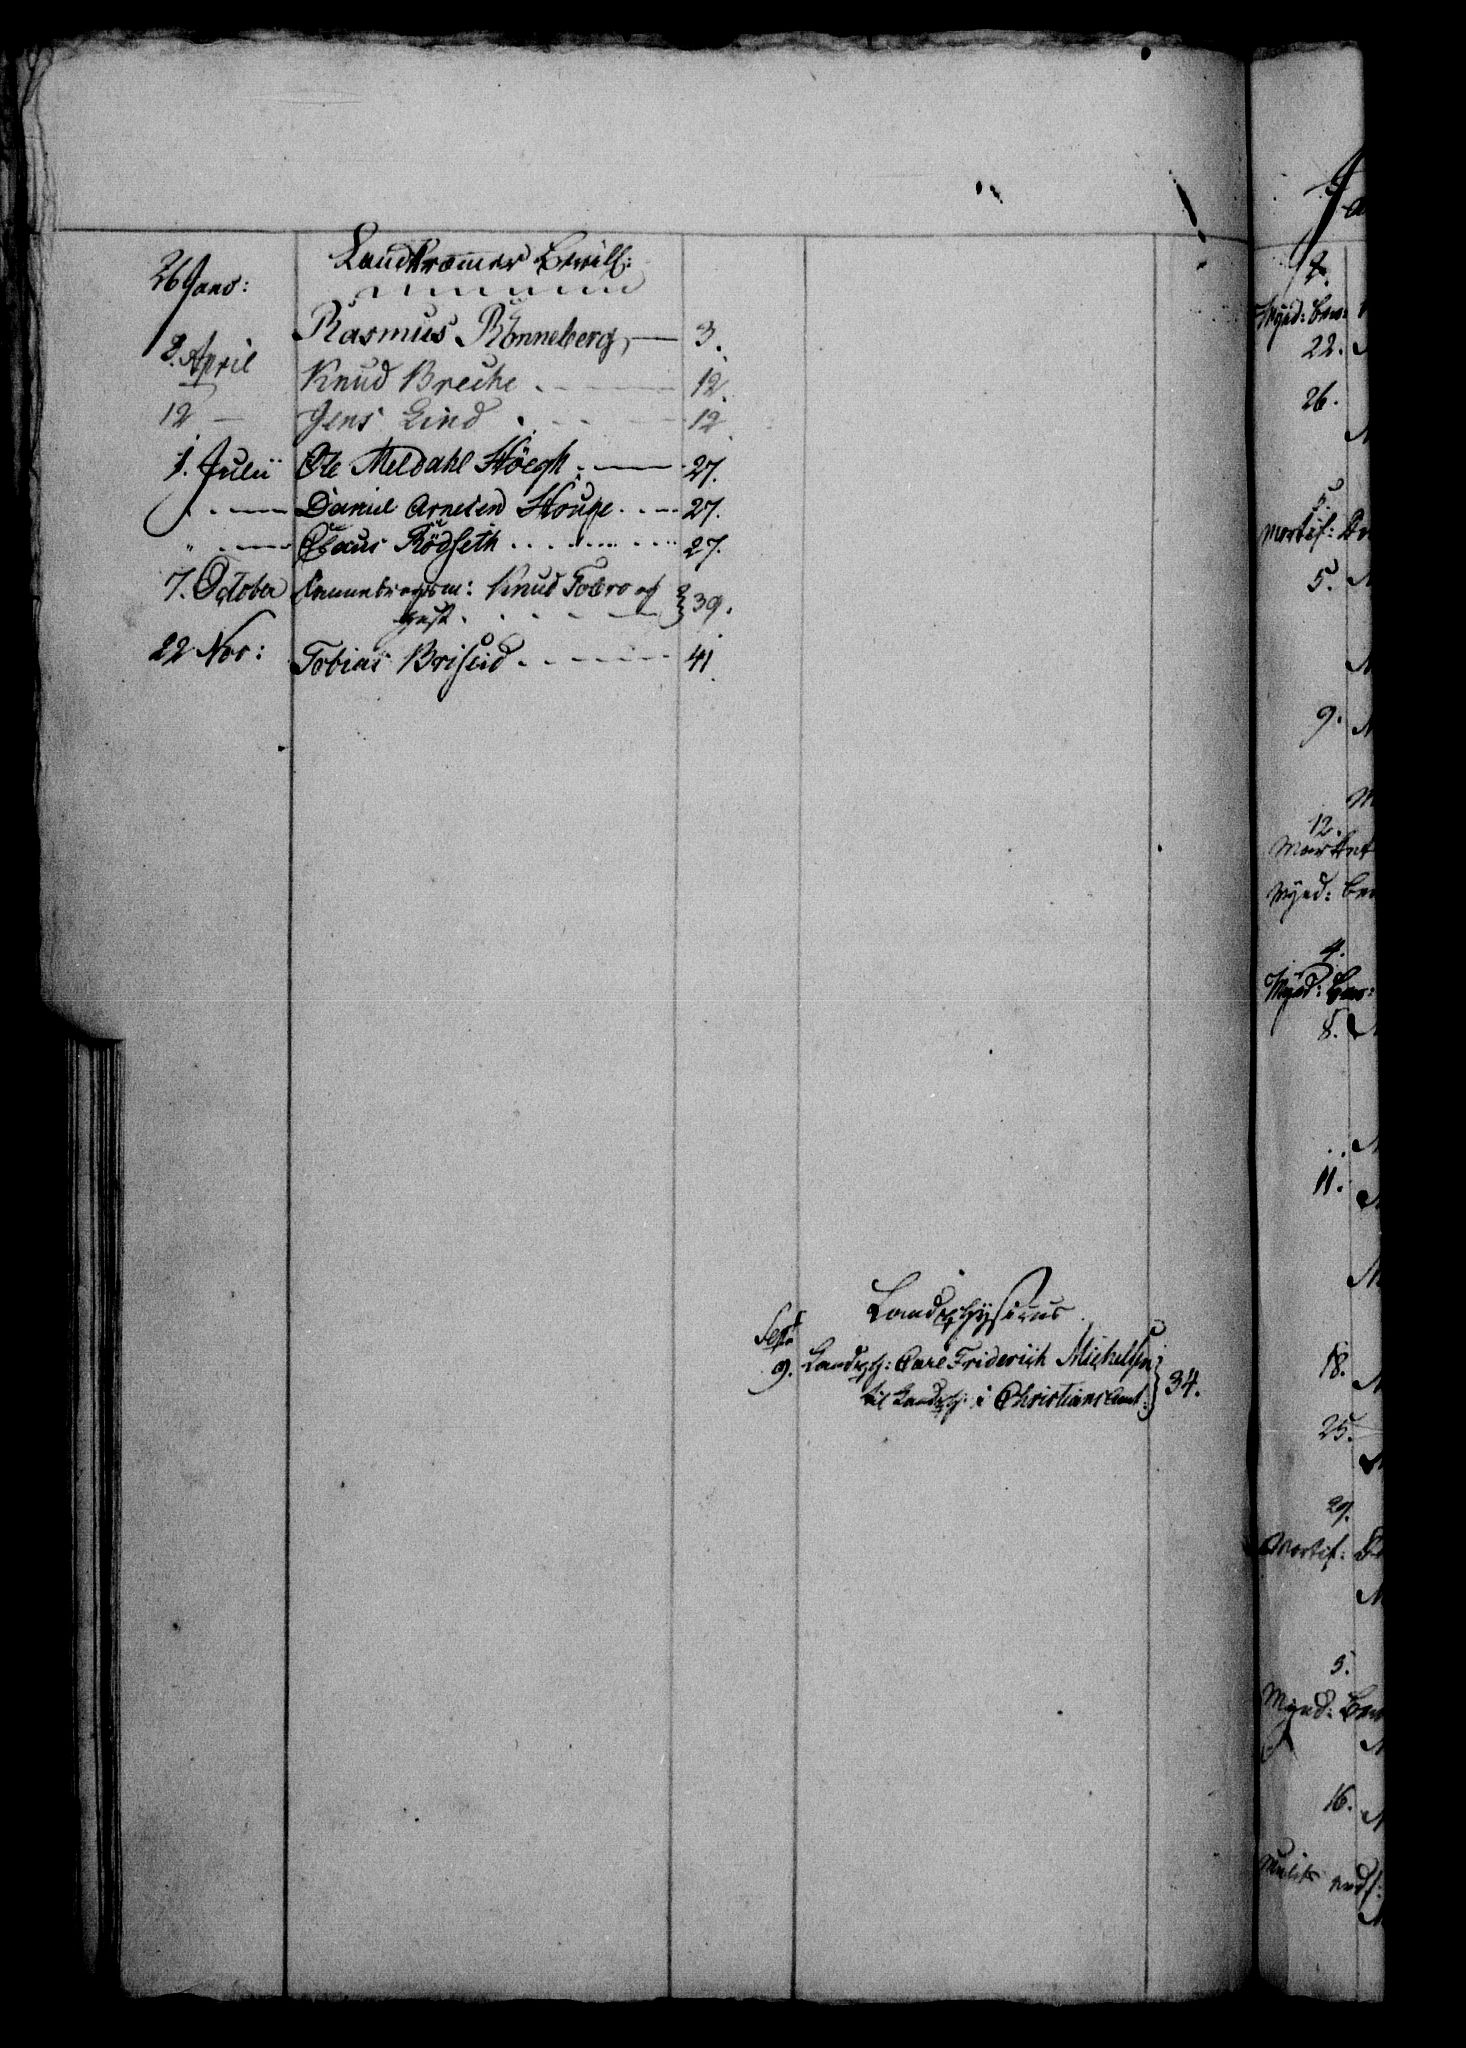 Landkræmer Bevill:
26 Janv:
Rasmus Rönneberg, — 3.
8. April Knud Breche . — 12.
12 — Jens Lind . — 12.
1. Julii Ole Meldahl Höegh . — 27.
" . — Daniel Arnesen Houge . . — 27.
" . — Claus Rödseth . . . . . 27.
7. October Dannebrogsm: Knud
39.
22 Nov: Tobias Briseid . — 41.
Landphysicus
Sept
9. Landph: Carl Friderich Michelsen
til Landph: i Christians Amt. } 34.
4.
Mynd: Bev:
22.
26.
5.
Mortif:
5.
9.
12.
Mynd:
4.
Mynd: Bev:
8.
11.
18.
25.
29.
Mortif:
5.
Mynd:
16.